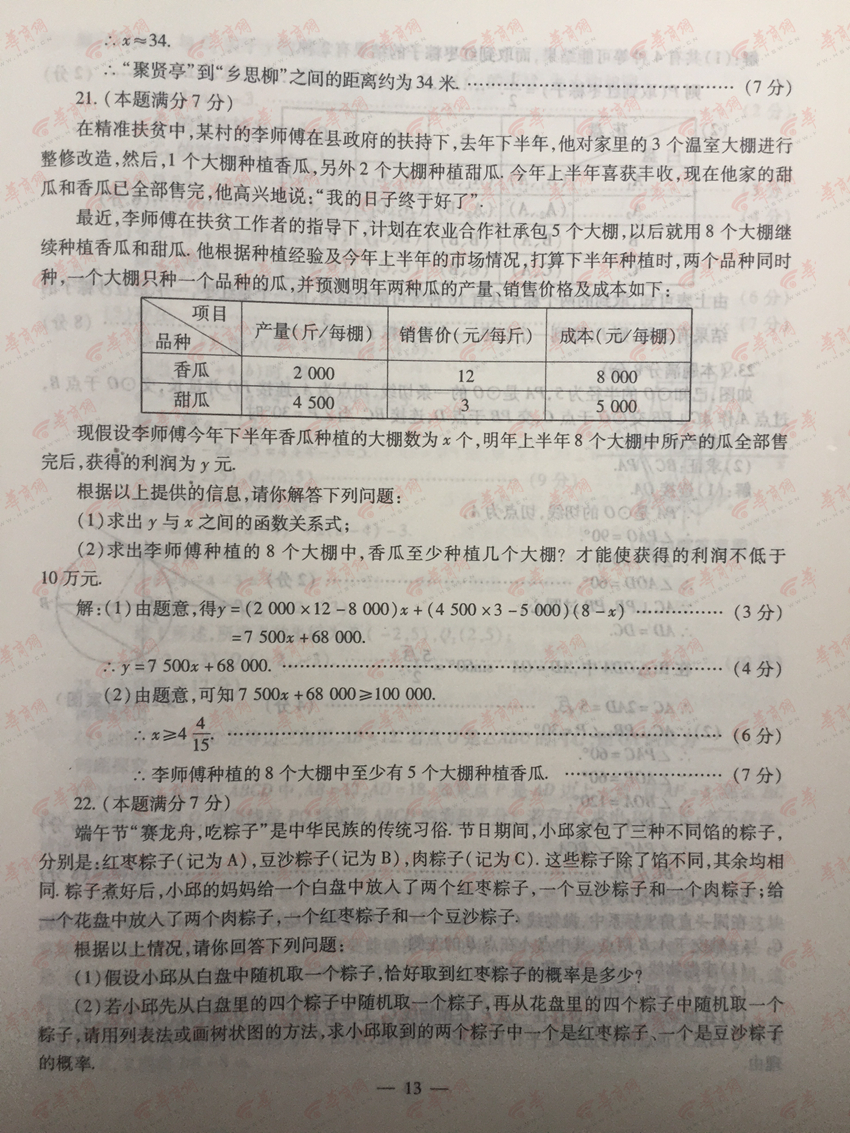 ∴ x≈34.
∴ “聚贤亭”到“乡思柳”之间的距离约为 34 米. …………………………………… (7 分)
21. (本题满分 7 分)
在精准扶贫中,某村的李师傅在县政府的扶持下,去年下半年,他对家里的 3 个温室大棚进行
整修改造,然后,1 个大棚种植香瓜,另外 2 个大棚种植甜瓜. 今年上半年喜获丰收,现在他家的甜
瓜和香瓜已全部售完,他高兴地说:“我的日子终于好了”.
最近,李师傅在扶贫工作者的指导下,计划在农业合作社承包 5 个大棚,以后就用 8 个大棚继
续种植香瓜和甜瓜. 他根据种植经验及今年上半年的市场情况,打算下半年种植时,两个品种同时
种,一个大棚只种一个品种的瓜,并预测明年两种瓜的产量、销售价格及成本如下:
项目
品种 产量(斤/每棚) 销售价(元/每斤) 成本(元/每棚)
香瓜 2 000 12 8 000
甜瓜 4 500 3 5 000
现假设李师傅今年下半年香瓜种植的大棚数为 x 个,明年上半年 8 个大棚中所产的瓜全部售
完后,获得的利润为 y 元.
根据以上提供的信息,请你解答下列问题:
(1)求出 y 与 x 之间的函数关系式;
(2)求出李师傅种植的 8 个大棚中,香瓜至少种植几个大棚? 才能使获得的利润不低于
10 万元.
解:(1)由题意,得y = (2 000 × 12 - 8 000)x + (4 500 × 3 - 5 000)(8 - x) …………… (3 分)
= 7 500x + 68 000.
∴ y = 7 500x + 68 000. …………………………………………………………… (4 分)
(2)由题意,可知 7 500x + 68 000 ≥ 100 000.
∴ x ≥ 4 4/15. …………………………………………………………………… (6 分)
∴ 李师傅种植的 8 个大棚中至少有 5 个大棚种植香瓜. …………………… (7 分)
22. (本题满分 7 分)
端午节“赛龙舟,吃粽子”是中华民族的传统习俗. 节日期间,小邱家包了三种不同馅的粽子,
分别是:红枣粽子(记为 A),豆沙粽子(记为 B),肉粽子(记为 C). 这些粽子除了馅不同,其余均相
同. 粽子煮好后,小邱的妈妈给一个白盘中放入了两个红枣粽子,一个豆沙粽子和一个肉粽子;给
一个花盘中放入了两个肉粽子,一个红枣粽子和一个豆沙粽子.
根据以上情况,请你回答下列问题:
(1)假设小邱从白盘中随机取一个粽子,恰好取到红枣粽子的概率是多少?
(2)若小邱先从白盘里的四个粽子中随机取一个粽子,再从花盘里的四个粽子中随机取一个
粽子,请用列表法或画树状图的方法,求小邱取到的两个粽子中一个是红枣粽子、一个是豆沙粽子
的概率.
— 13 —